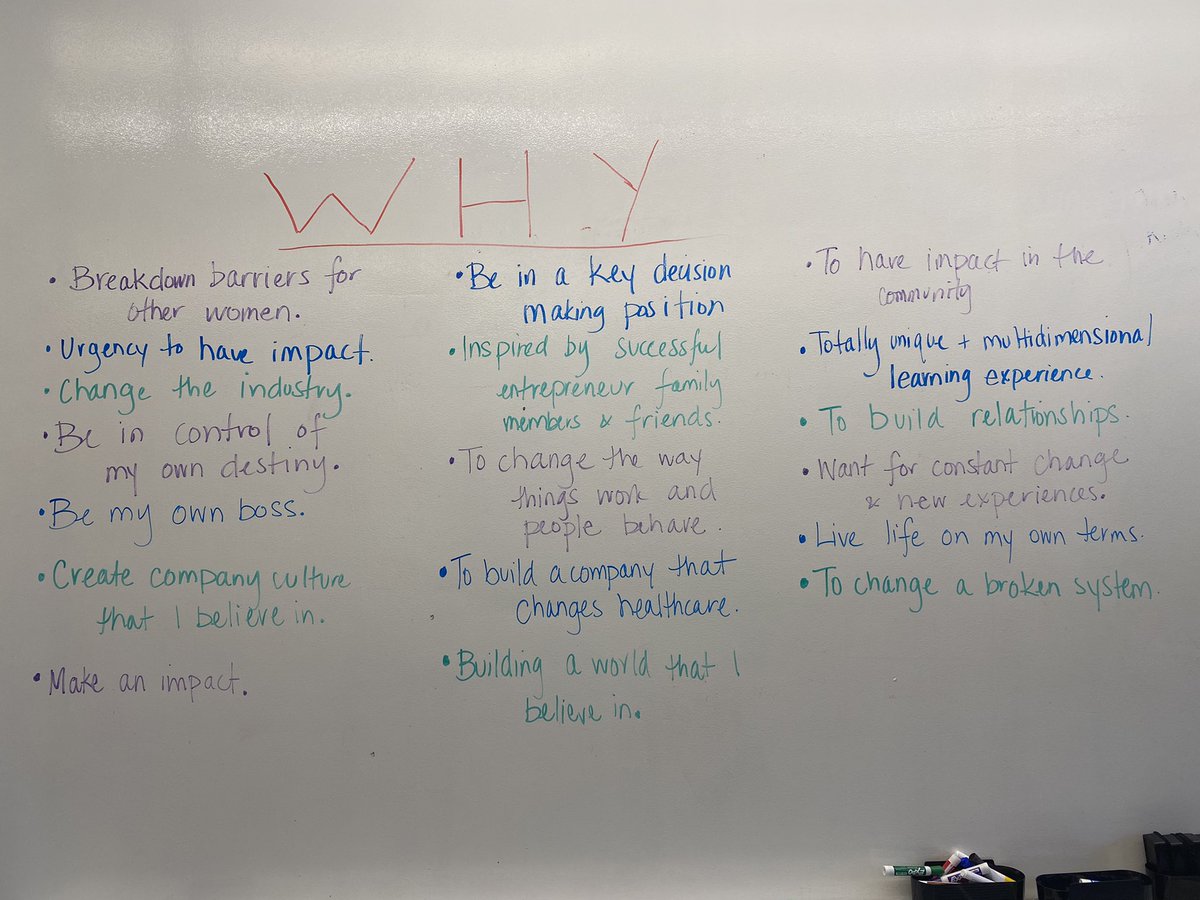 WHY
• Breakdown barriers for
other women.
• Urgency to have impact.
• Change the industry.
• Be in control of
my own destiny.
• Be my own boss.
• Create company culture
that I believe in.
• Make an impact.
• Be in a key decision
making position
• Inspired by successful
entrepreneur family
members & friends.
• To change the way
things work and
people behave.
• To build a company that
changes healthcare.
• Building a world that I
believe in.
• To have impact in the
community
• Totally unique + multidimensional
learning experience.
• To build relationships.
• Want for constant change
& new experiences.
• Live life on my own terms.
• To change a broken system.
EXPO